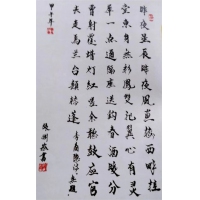 昨夜星辰昨夜風畫樓西畔桂
堂東身無彩鳳雙飛翼心有靈
犀一點通隔座送鈎春酒暖分
曹射覆蠟燈紅嗟余聽鼓應官
去走馬蘭台類轉蓬 李商隱詩無題
甲午年
書